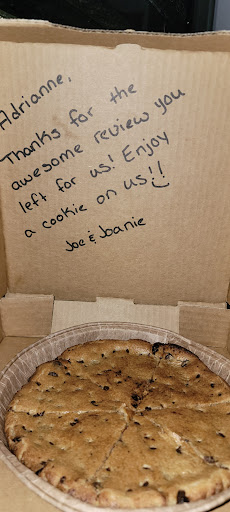 Adrianne,
Thanks for the
awesome review you
left for us! Enjoy
a cookie on us!!
Joe & Joanie